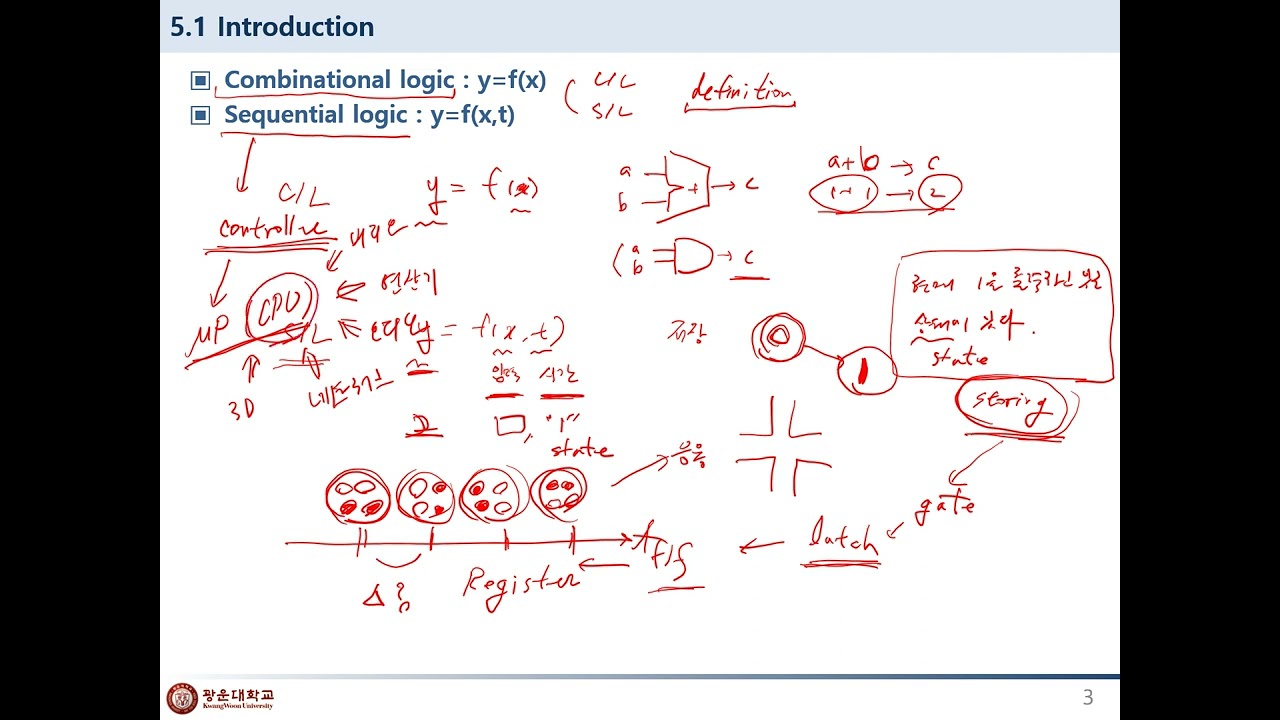 5.1 Introduction
Combinational logic : y=f(x)
Sequential logic : y=f(x,t)
C/L
S/L
definition
C/L
controller
y = f(x)
a
b
+
c
a+b → c
1+1 → 2
a
b
c
μP
CPU
S/L
연산기
y = f(x, t)
입력 시간
3D
네트워크
"1"
state
저장
0
1
상태가 있다.
state
storing
응용
gate
latch
f/f
Register
t
Δ?
광운대학교
KwangWoon University
3